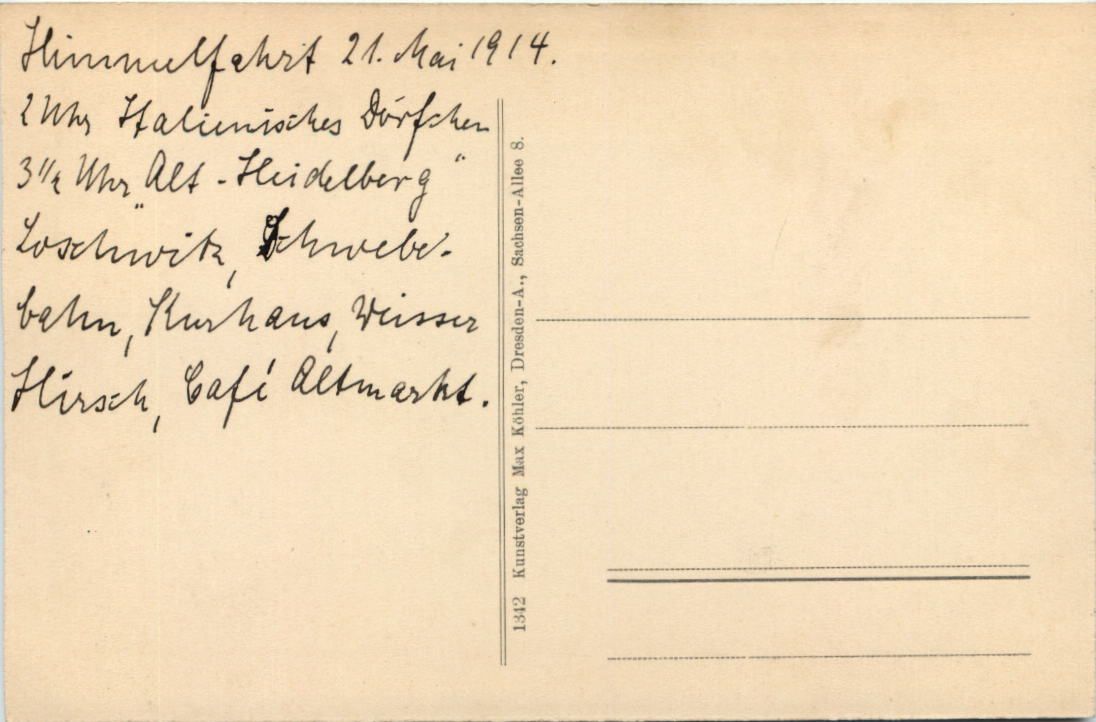 Himmelfahrt 21. Mai 1914.
2 Uhr Italienisches Dörfchen
3 1/2 Uhr „Alt-Heidelberg“
Loschwitz, Schwebe-
bahn, Kurhaus, Weisser
Hirsch, Café Altmarkt.
1342 Kunstverlag Max Köhler, Dresden-A., Sachsen-Allee 8.